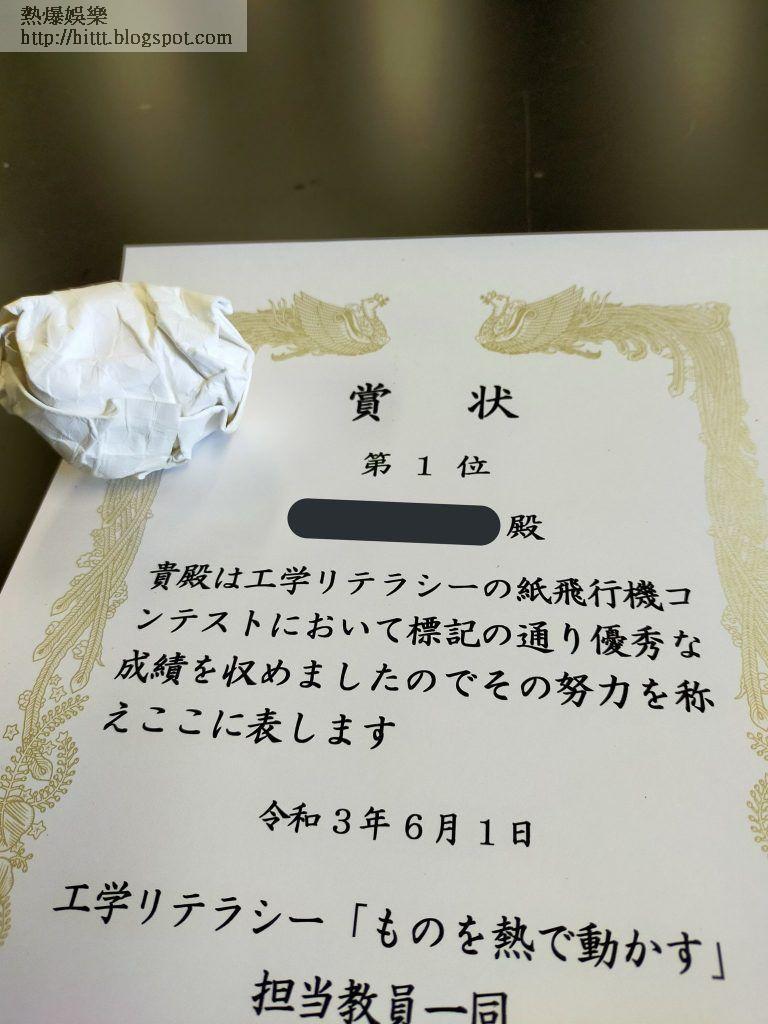 熱爆娛樂
http://hittt.blogspot.com
賞 状
第 1 位
殿
貴殿は工学リテラシーの紙飛行機コ
ンテストにおいて標記の通り優秀な
成績を収めましたのでその努力を称
えここに表します
令和3年6月1日
工学リテラシー「ものを熱で動かす」
担当教員一同